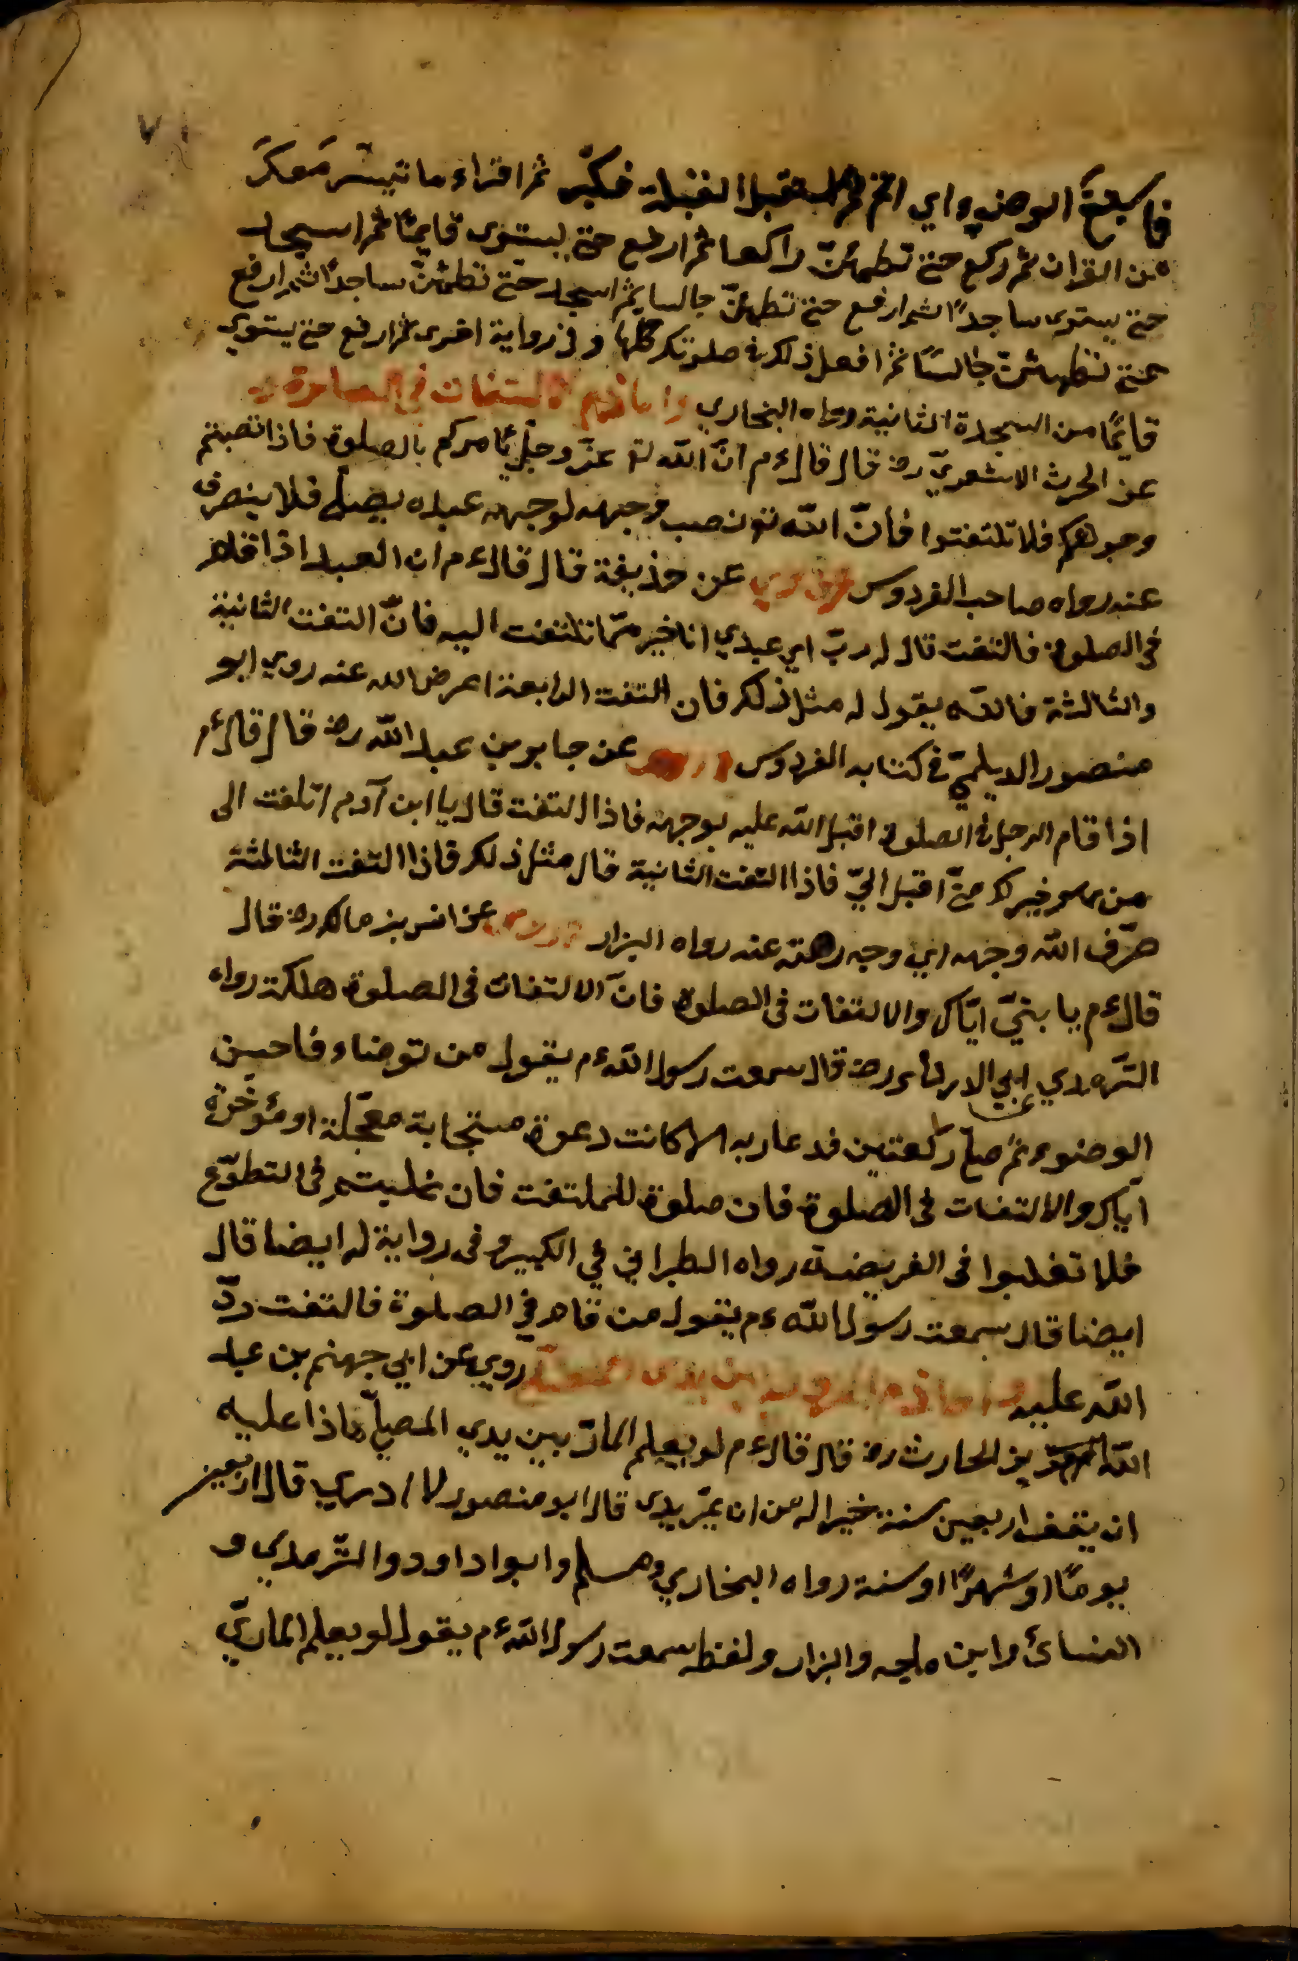 ٧١
فاسبغ الوضوء اي اتم ثم استقبل القبلة فكبّر ثم اقراء ما تيسّر معكَ
من القران ثم اركع حتى تطمئنّ راكعا ثم ارفع حتى يستوى قايمًا ثم اسجد
حتى يستوى ساجدًا ثم ارفع حتى تطمئنّ جالسا ثم اسجد حتّى تطمئنّ ساجدًا ثم ارفع
حتى تطمئنّ جالسًا ثم افعل ذلك فى صلوتك كلها وفى رواية اخرى ثم ارفع حتى يستوي
قايمًا من السجدة الثانية رواه البخاري واما ذم الالتفات في الصلوة
عن الحرث الاشعريّ رض قال قال ءم انّ الله تع عزّ وجلّ يامركم بالصلوة فاذا نصبتم
وجوهكم فلا تلتفتوا فانّ الله تع نصب وجهه لوجه عبده يصلى فلا ينصرف
عنه رواه صاحب الفردوس عن حذيفة قال قال ءم ان العبد اذا قام
فى الصلوة فالتفت قال له ربّ اي عبدي انا خير ممّا تلتفت اليه فانّ التفت الثانية
والثالثة فالله يقول له مثل ذلك فان التفت الرابعة اعرض الله عنه روي ابو
منصور الديلميّ في كتابه الفردوس عن جابر بن عبد الله رض قال قال ءم
اذا قام الرجل فى الصلوة اقبل الله عليه بوجهه فاذا التفت قال يا ابن آدم اتلفت الى
من هو خير لك منّى اقبل اليّ فاذا التفت الثانية قال مثل ذلك فاذا التفت الثالثة
صرّف الله وجهه اي وجه رحمته عنه رواه البزار عن انس بن مالك رض قال
قال ءم يا بنيّ ايّاك والالتفات فى الصلوة فانّ الالتفات فى الصلوة هلكة رواه
التّرمدي عن ابي الدرداء رض قال سمعت رسول الله ءم يقول من توضاء فاحسن
الوضوء ثم صلّى ركعتين فدعا ربه الا كانت دعوة مستجابة معجّلة او مئوخّرة
ايّاك والالتفات فى الصّلوة فان صلوة للملتفت فان غلبتم فى التطوّع
فلا تغلبوا فى الفريضة رواه الطبراني في الكبير وفى رواية له ايضا قال
ايضا قال سمعت رسول الله ءم يقول من قام في الصلوة فالتفت ردّ
الله عليه واما ذم المرور بين يدى المصلّى روي عن ابي جهنم بن عبد
الله بن الحارث رض قال قال ءم لو يعلم المارّ بين يدي المصلّي ماذا عليه
ان يقف اربعين سنة خير اله من ان يمرّ يدى قال ابو منصور لا ادري قال اربعين
يومًا او شهرًا او سنة رواه البخاري ومسلم وابوا داود والتّرمدي و
النسائ وابن ماجه والبزار ولفظه سمعت رسول الله ءم يقول لو يعلم المارّي